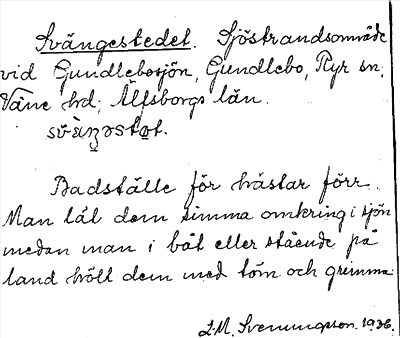 Svängestedet. Sjöstrandsområde
vid Gundlebosjön, Gundlebo, Ryr sn,
Väne hd, Älfsborgs län.
Badställe för hästar förr.
Man lät dem simma omkring i sjön
medan man i båt eller stående på
land höll dem med töm och grimma.
L.M. Svenungsson. 1936.